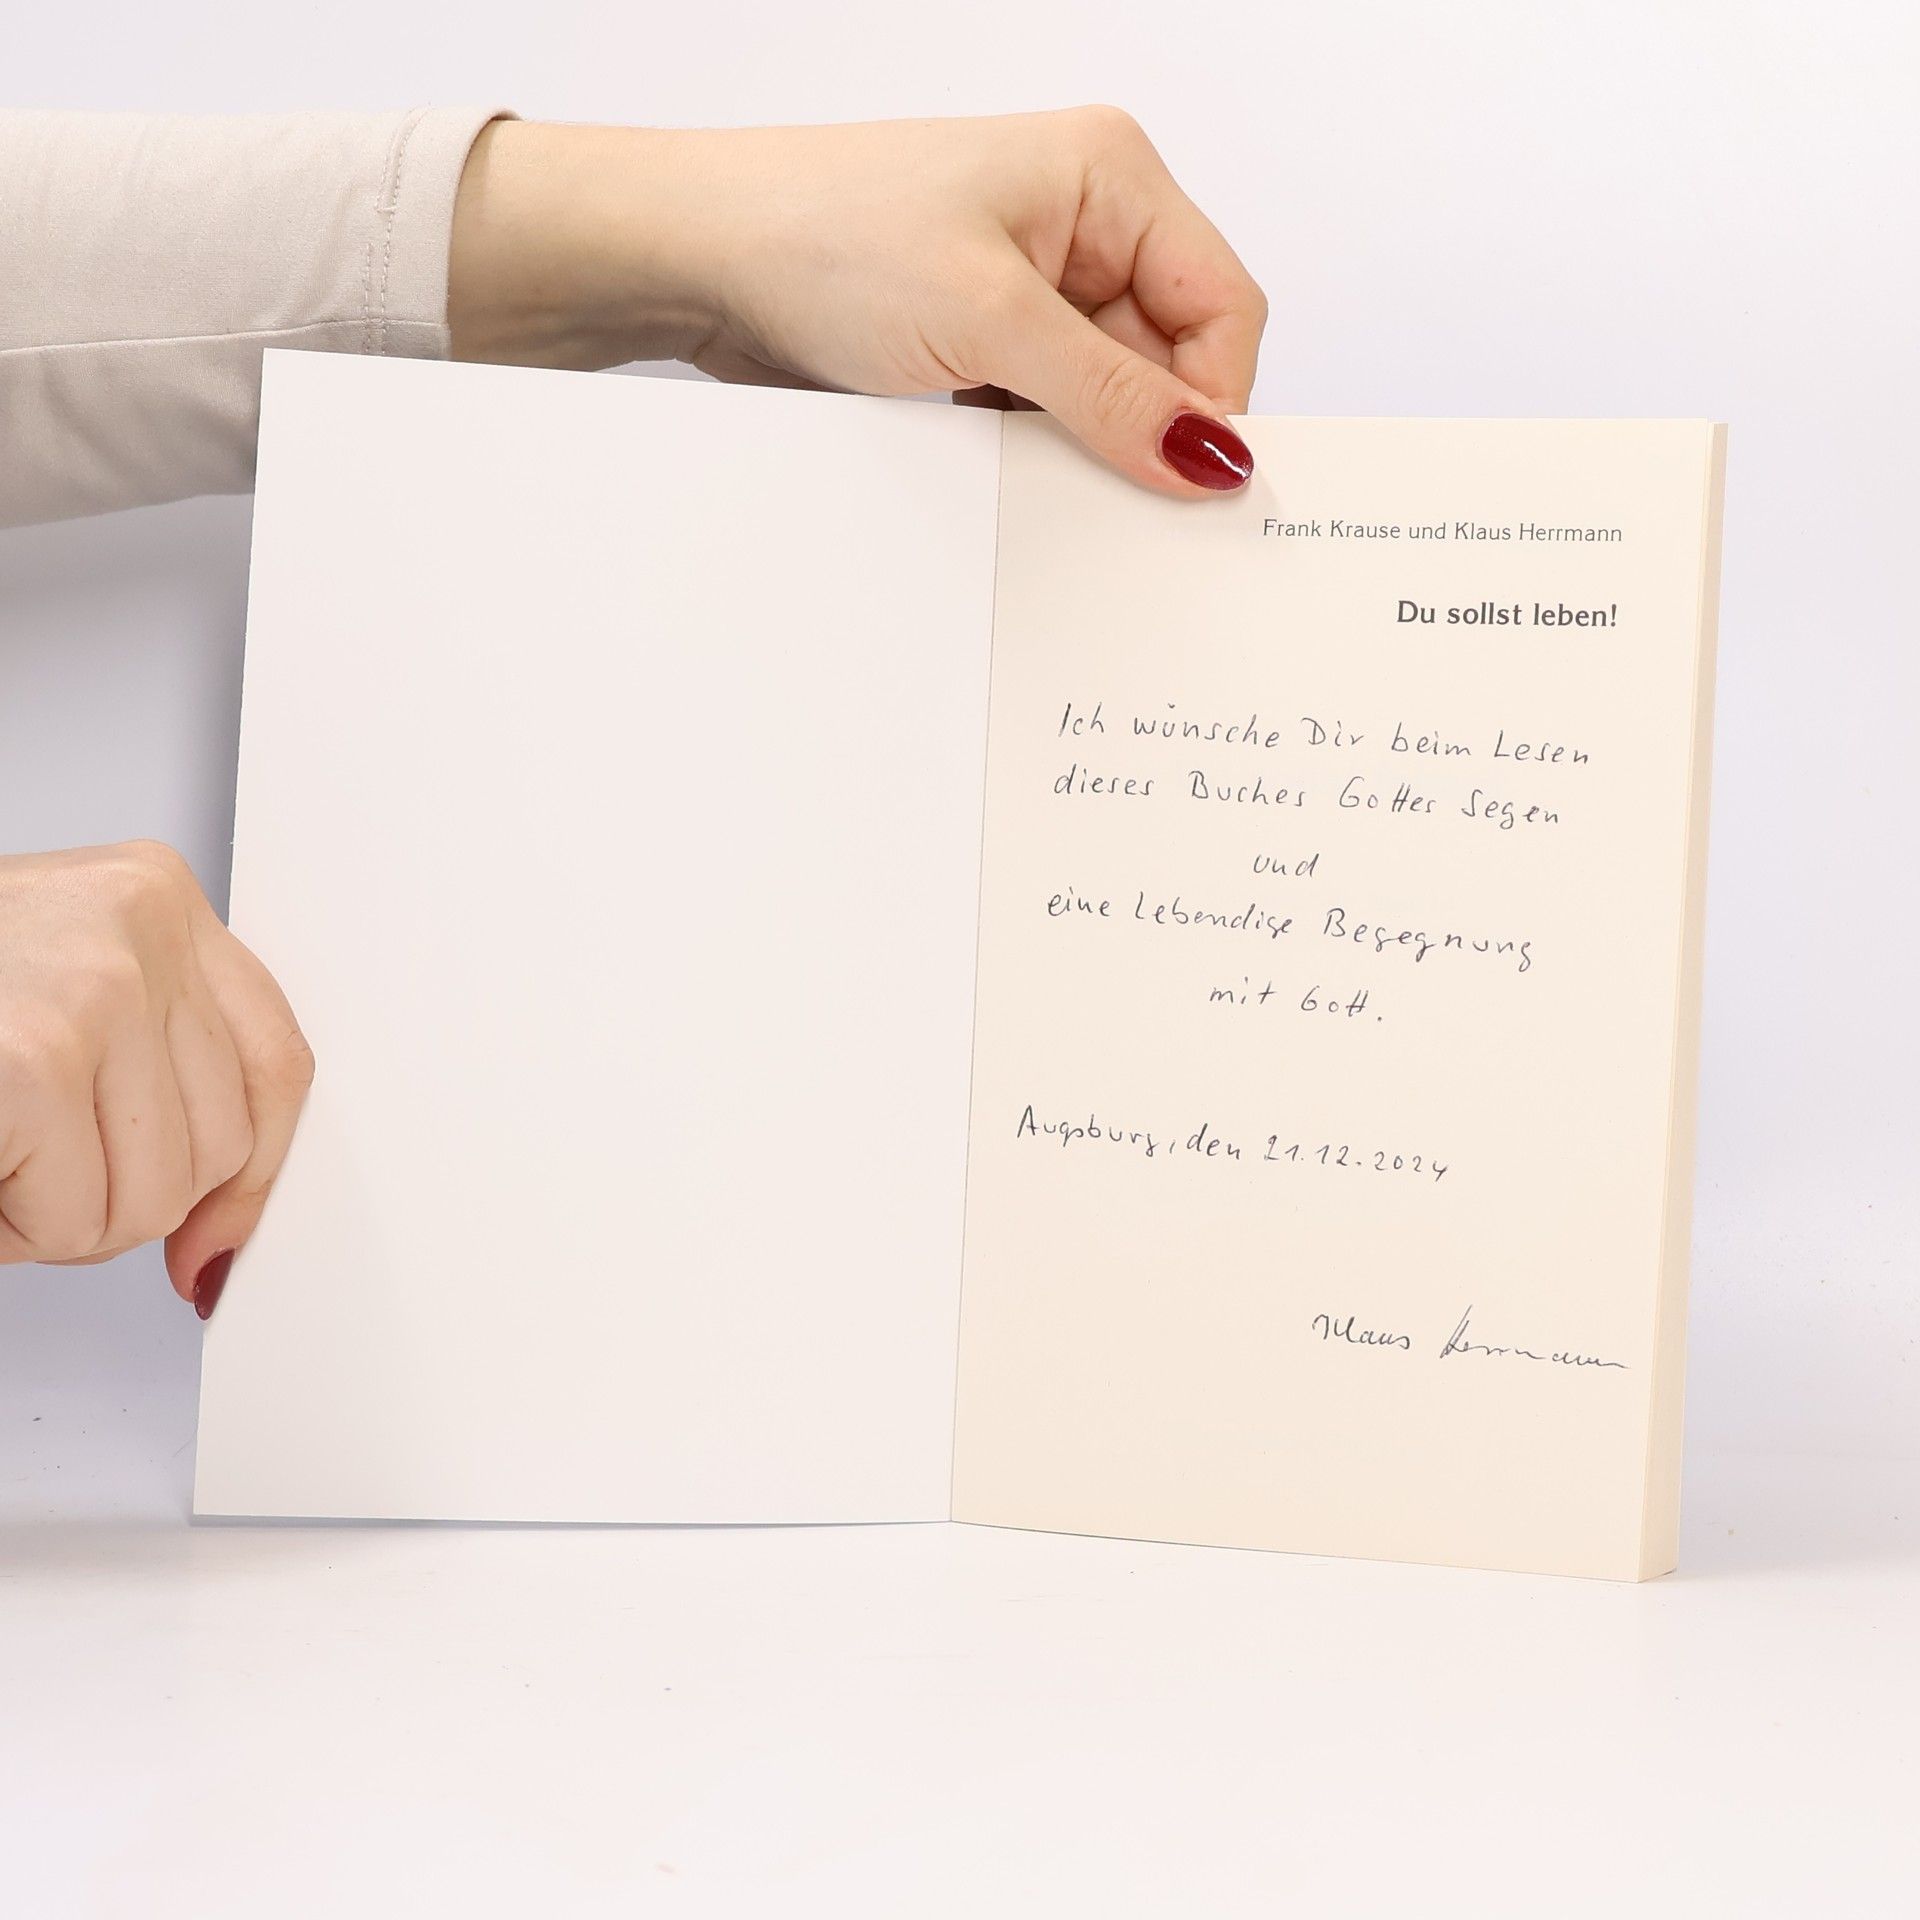 Frank Krause und Klaus Herrmann
Du sollst leben!
Ich wünsche Dir beim Lesen
dieses Buches Gottes Segen
und
eine Lebendige Begegnung
mit Gott.
Augsburg, den 21.12.2024
Klaus Herrmann